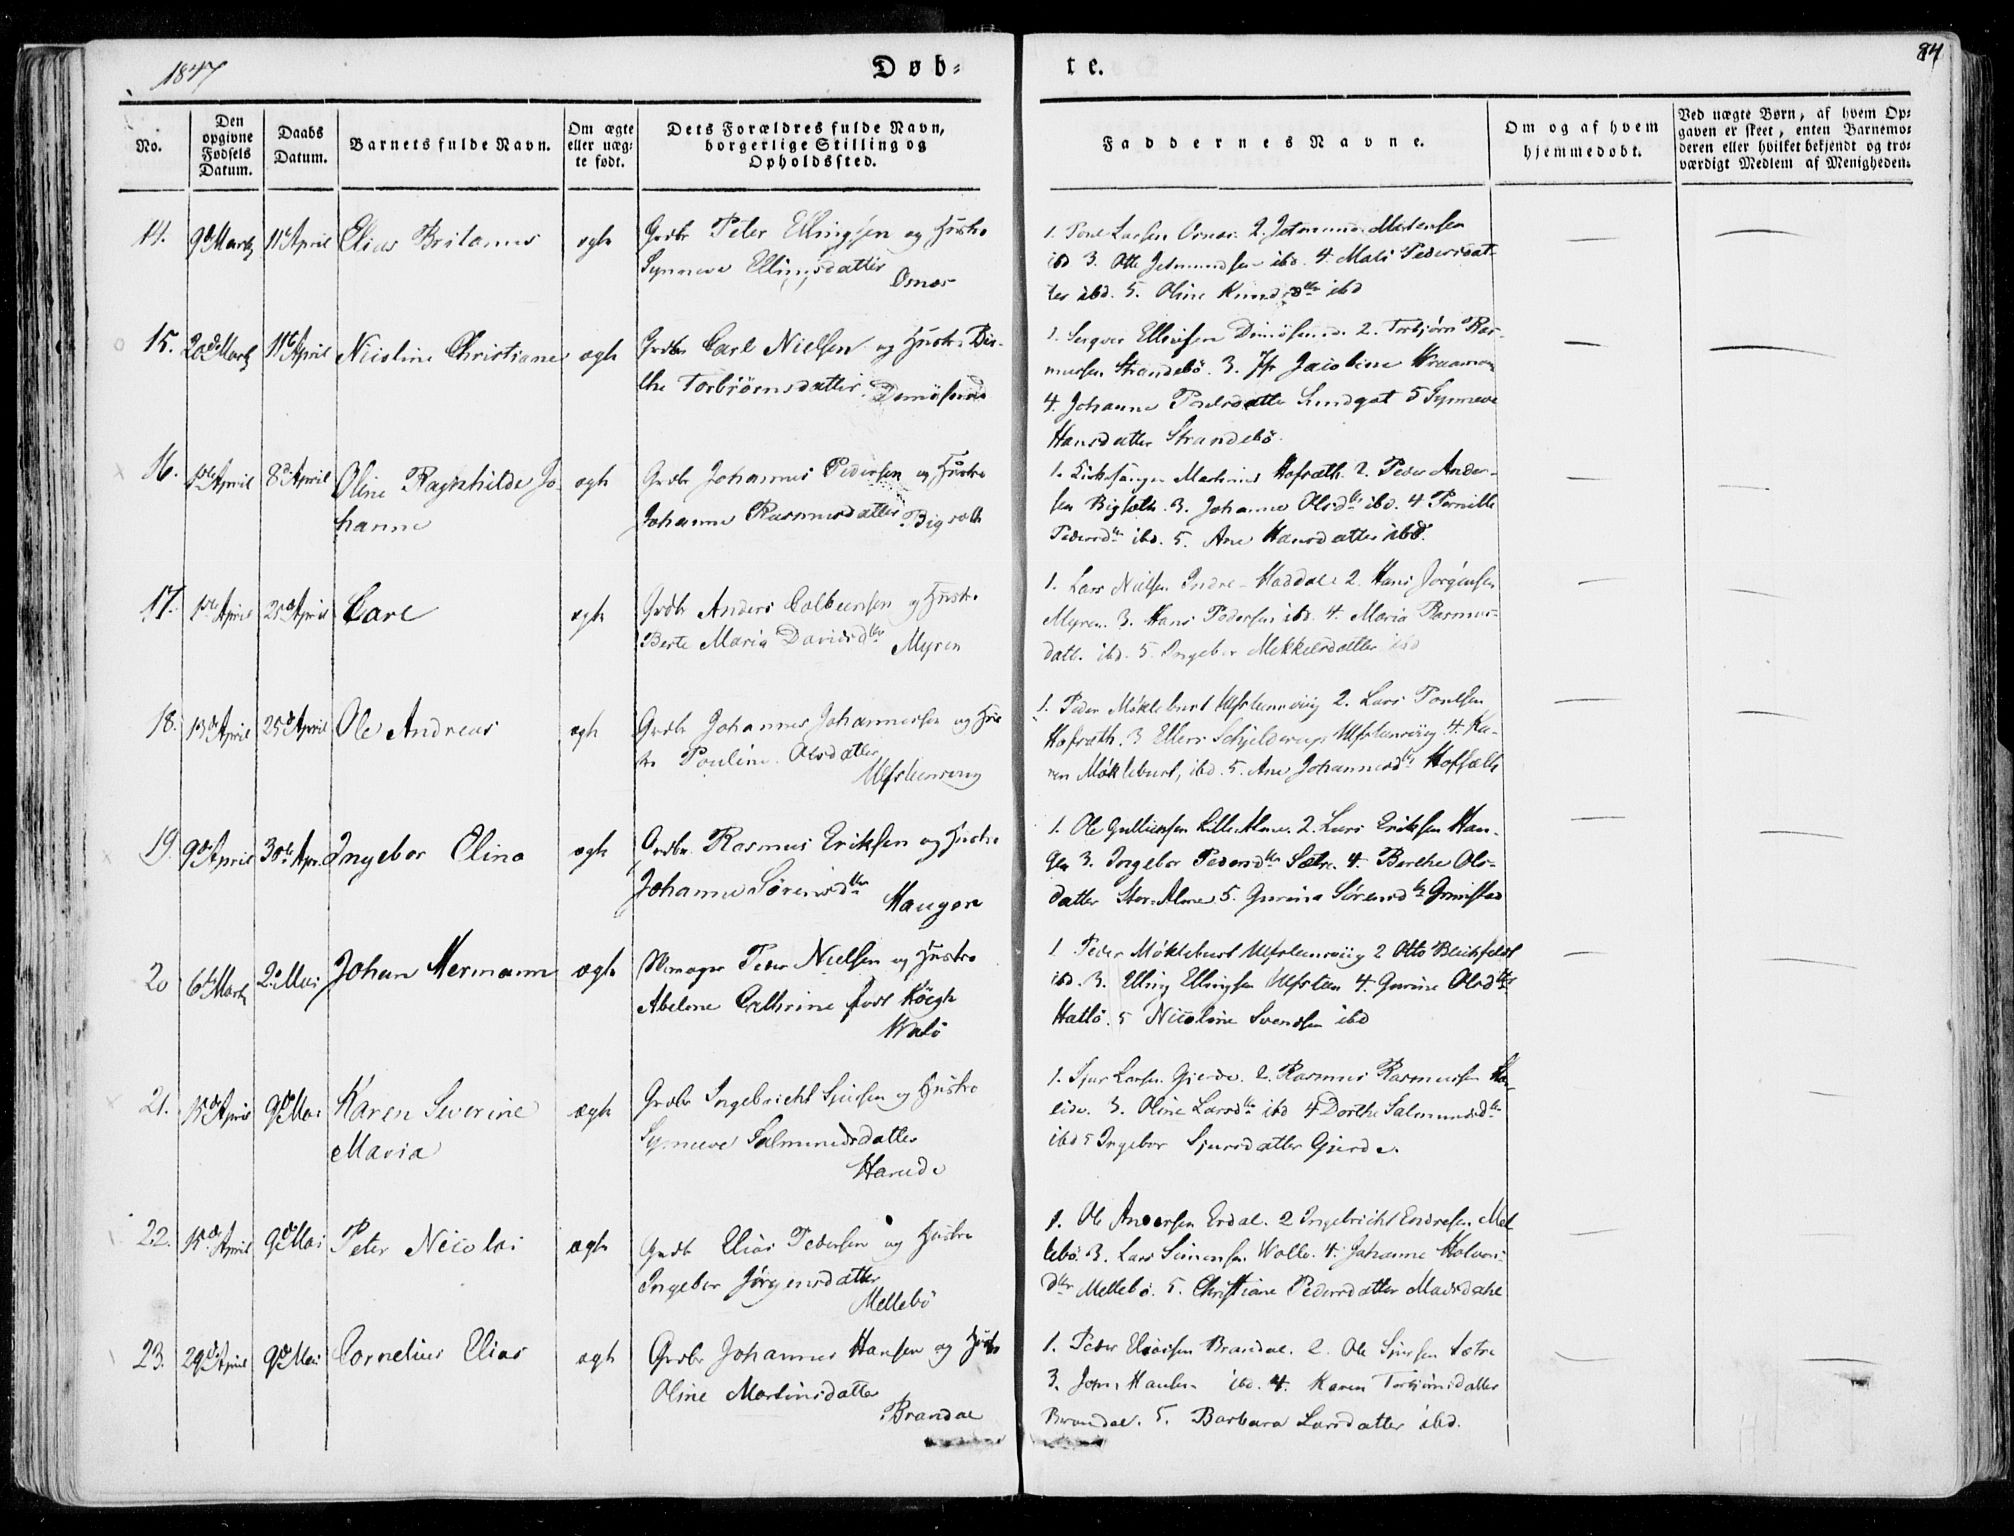 1847
Døb-
te.
84
No.
Den opgivne Fødsels Datum.
Daabs Datum.
Barnets fulde Navn.
Om ægte eller uægte født.
Dets Forældres fulde Navn, borgerlige Stilling og Opholdssted.
Faddernes Navne.
Om og af hvem hjemmedøbt.
Ved uægte Børn, af hvem Opgaven er skeet, enten Barnemoderen eller hvilket bekjendt og troværdigt Medlem af Menigheden.
14. 9d Marts 11te April Elias ægte Grdbr Peter Ellingsen og Hustro
Synneve Ellingsdatter
1. Poul Larsen 2.
ibd 3. Otte ibd. 4. Mali Pedersdat-
ter ibd. 5. Oline Knudsdtr ibd
15. 20d Marts 11te April Nicoline Christiane ægte Grdbr Carl Nielsen og Hustro Ber-
the Torbiørnsdatter. Dimøsund
1. Ellingsen Dimøsund. 2. Torbjørn Ras-
mussen Strandebö. 3. Jfr Jacobine
4. Johanne Poulsdatter 5 Synneve
Hansdatter Strandebö.
16. 1ste April 8d April Oline Ragnhilde Jo-
hanne
ægte Grdbr Johannes Pedersen og Hustro
Johanne Rasmusdatter Bigsæth
1. Kirkesanger Martinus Hofsæth 2. Peder Ander-
sen Bigsæth. 3. Johanne Olsdtr ibd. 4 Pernille
Pedersdtr ibd. 5. Ane Hansdatter ibd.
17. 1ste April 25d April Carl ægte Grdbr Anders Colbensen og Hustro
Berte Maria Davidsdtr Myren
1. Lars Nielsen Indre-Haddal 2. Hans Jørgensen
Myren. 3. Hans Pedersen ibd. 4. Maria Rasmus-
datr. ibd. 5. Ingebor Mekkelsdatter ibd
18. 13d April 25d April Ole Andreas ægte Grdbr Johannes Johannessen og Hus-
tro Pouline Olsdatter
Ulfsteensvug
1. Peder Mökleburst Ulfsteensviig 2. Lars Poulsen
Hofsæth. 3 Ellers Schjelderup Ulfsteensviig 4. Ka-
ren Möklebust, ibd. 5. Ane Johannesdtr Hofsæth
19. 9de April 30te Apr. Ingebor Elina ægte Grdbr Rasmus Eriksen og Hustro
Johanne Sörensdtr
Haugen
1. Ole Gulliksen Lille-Alme. 2. Lars Eriksen Hau-
gen 3. Ingebor Pedersdtr Sætre 4. Berthe Ols-
datter Stor-Alme 5. Gurina Sörensdtr Grimstad
20 6te Marts 2d Mai Johan Hermann ægte Peder Nielsen og Hustro
Abelone Cathrine født
1 Peder Mökleburst Ulfsteensviig 2 Otto Bleikfeldt
ibd. 3. Elling Ellingsen Ulfsteen 4. Gurine Olsdtr
Hatlö. 5 Nicoline Svendsen ibd
21. 15de April 9de Mai Karen Severine
Maria
ægte Grdbr Ingebricht Sjursen og Hustro
Synneve Salmundsdatter
Hareide
1. Sjur Larsen Gjerde. 2. Rasmus Rasmussen Ha-
reide. 3. Oline Larsdtr ibd 4 Dorthe Salmundsdtr
ibd 5 Ingebor Sjursdatter Gjerde.
22. 15de April 9de Mai Peter Nicolai ægte Grdbr Elias Pedersen og Hustro
Ingebor Jörgensdatter
Mellebö
1. Ole Andersen Erdal. 2 Ingebricht Endresen Mel-
lebö. 3. Lars Simensen Wolle. 4. Johanne Halvors-
dtr Mellebö. 5. Christiane Pedersdatter
23. 29de April 9de Mai Cornelius Elias ægte Grdbr Johannes Hansen og Hustro
Oline Martinsdatter
Brandal
1. Peder Eliassen Brandal. 2. Ole Sjursen Sætre
3. John Hansen ibd. 4. Karen Torbjörnsdatter
Brandal. 5. Barbara Larsdatter ibd.